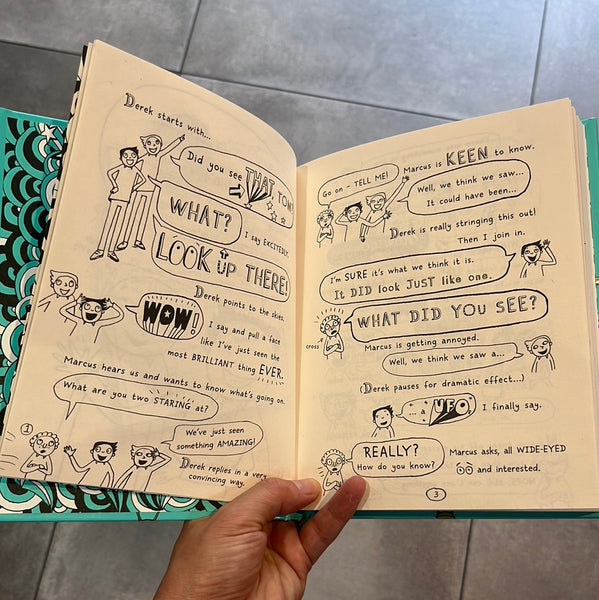 Derek starts with...
Did you see THAT TOM?
WHAT?
I say EXCITEDLY.
LOOK UP THERE!
Derek points to the skies.
WOW!
I say and pull a face
like I've just seen the
most BRILLIANT thing EVER.
Marcus hears us and wants to know what's going on.
What are you two STARING at?
We've just seen
something AMAZING!
Derek replies in a very
convincing way.
Go on - TELL ME!
Marcus is KEEN to know.
Well, we think we saw...
It could have been...
Derek is really stringing this out!
Then I join in.
I'm SURE it's what we think it is.
It DID look JUST like one.
WHAT DID YOU SEE?
cross
Marcus is getting annoyed.
Well, we think we saw a...
(Derek pauses for dramatic effect...)
... a UFO,
I finally say.
REALLY?
How do you know?
Marcus asks, all WIDE-EYED
and interested.
3